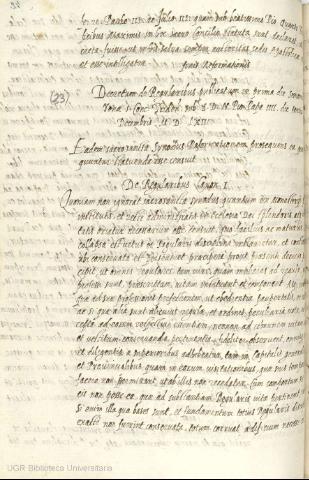 ferre Paulo III et Julio III quam sub beatissimo Pio Quarto
tibus Maximis in hoc sacro Concilio statuta sunt declarat
ita salva semper autoritas sedis Apostolicae
et esse intelligatur. finis Reformationis
(23) Decretum de Regularibus publicatum
Nona S. Conc. Triden. sub S. D. N. Pio Papa IIII. die
Decembris M D LXIII
Eadem sacrosancta Synodus Reformationem prosequens ea
quuntur statuenda esse censuit
De Regularibus Canon I
Quoniam non ignorat sacrosancta Synodus quantum ex monasteriis
institutis et recte administratis in ecclesia Dei splendoris
utilitatis oriatur necessarium esse censuit, quo facilius ac maturius
collapsa est vetus et regularis disciplina instauretur, et
ubi conservata est perseveret praecipere prout praesenti decreto
cipit, ut omnes regulares tam viri, quam mulieres ad regulae
professi sunt, praescriptum, vitam instituant et componant
quae ad suae professionis perfectionem, ut obedientiae, paupertatis,
ac si quae alia sunt alicuius regulae, et ordinis peculiaria vota
ad eorum respective essentiam, necnon ad communem vitam
et vestitum conservanda pertinentia, fideliter observent, omnisque
et diligentia a superioribus adhibeatur, tam in Capitulis
et Provincialibus, quam in eorum visitationibus, quae suis
facere non praetermittant, ut ab illis non recedatur, cum compertum
eis non posse ea, quae ad substantiam Regularis vitae pertinent
si enim illa quae bases sunt, et fundamentum totius Regularis
exacte non fuerint conservata, totum corruat aedificium necesse
UGR Biblioteca Universitaria